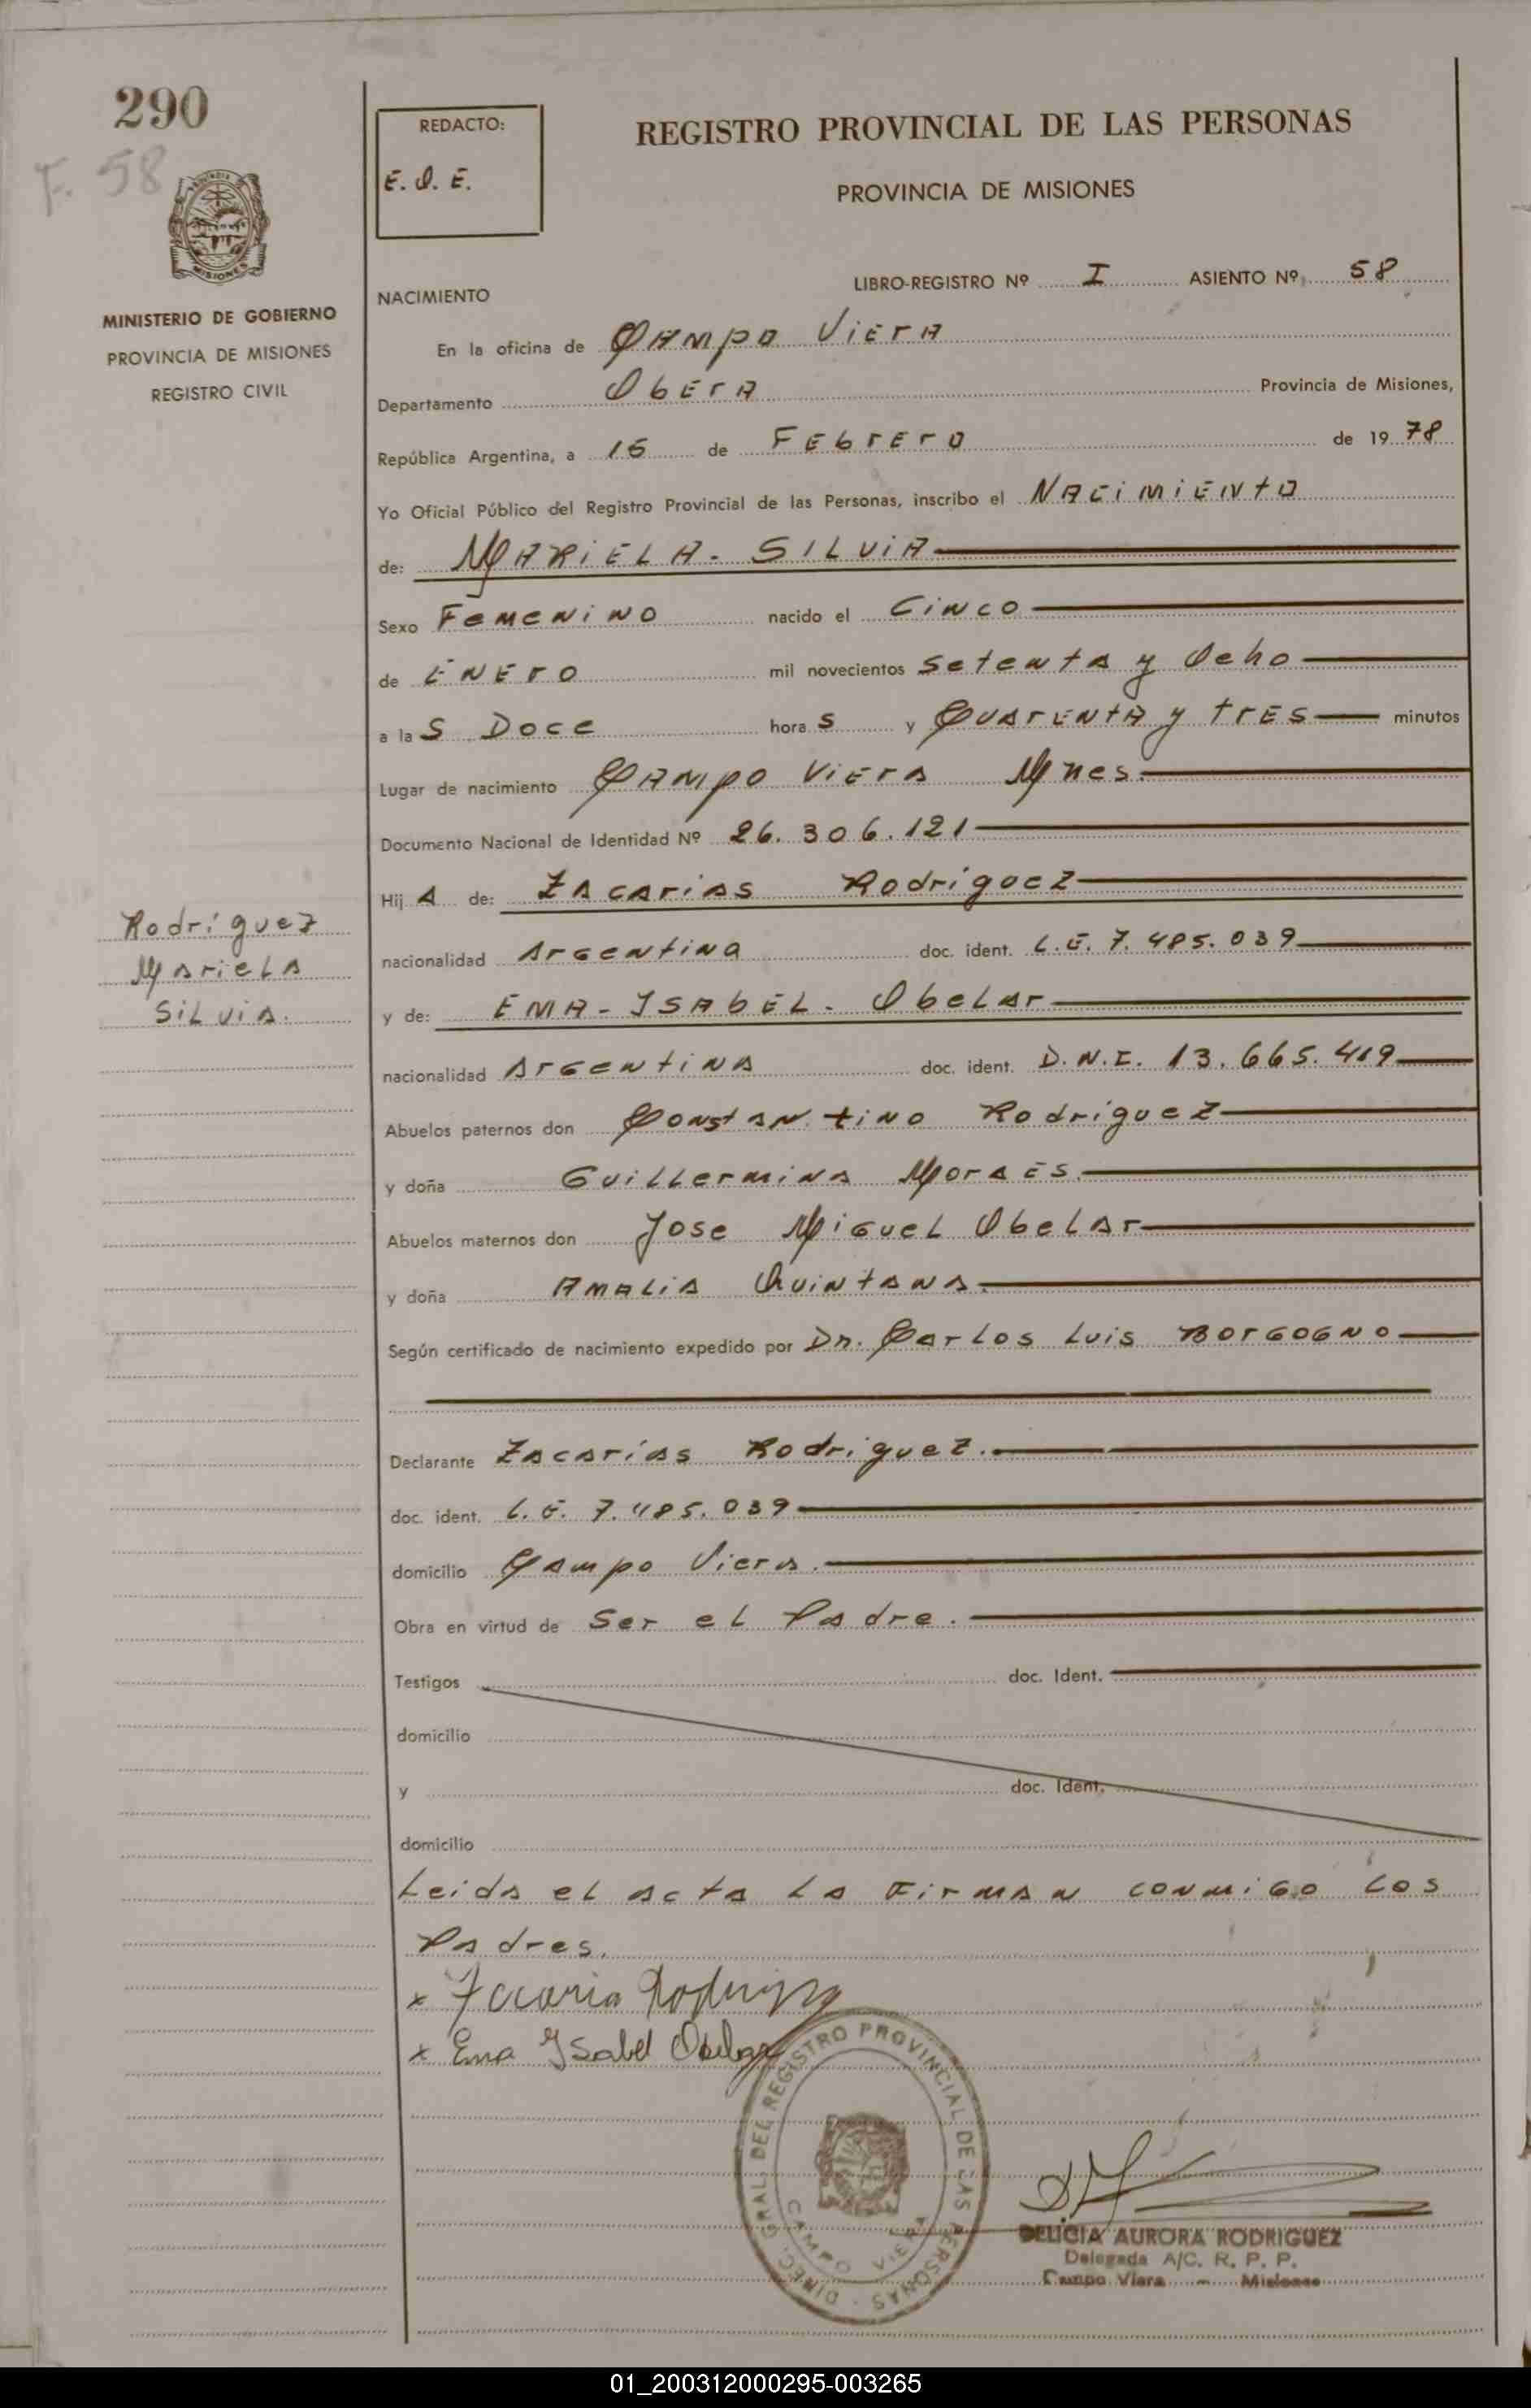 290
F. 58
MISIONES
MINISTERIO DE GOBIERNO
PROVINCIA DE MISIONES
REGISTRO CIVIL
REDACTO:
E. O. E.
REGISTRO PROVINCIAL DE LAS PERSONAS
PROVINCIA DE MISIONES
NACIMIENTO
LIBRO-REGISTRO Nº I ASIENTO Nº 58
En la oficina de CAMPO VIERA
Departamento ObErA Provincia de Misiones,
República Argentina, a 16 de FEbrErO de 19 78
Yo Oficial Público del Registro Provincial de las Personas, inscribo el NACiMiENtO
de: MARiELA - SILViA
Sexo FemeNiNO nacido el CiNco
de ENErO mil novecientos Setenta y Ocho
a la S Doce hora S y CUArENtA y trES minutos
Lugar de nacimiento CAMpo ViErA Mnes.
Documento Nacional de Identidad Nº 26.306.121
Hij A de: ZAcAriAs Rodríguez
nacionalidad ArGentina doc. ident. L.E. 7.485.039
Rodríguez
MArieLA
SiLViA.
y de: EMA - ISAbEL - ObeLAr
nacionalidad ArGentinA doc. ident. D.N.I. 13.665.419
Abuelos paternos don ConstANtiNo Rodríguez
y doña GuiLLerminA MorAES.
Abuelos maternos don Jose MiGueL ObeLAr
y doña AmALiA QuintANA.
Según certificado de nacimiento expedido por Dr. CarLos Luis BorGoGNo
Declarante ZAcAríAs Rodriguez.
doc. ident. L.E. 7.485.039
domicilio CAmpo VierA.
Obra en virtud de Ser eL PAdre.
Testigos doc. Ident.
domicilio
y doc. Ident.
domicilio
LeidA eL ActA LA FirmAN conmiGo Los
PAdres.
x Zacaria Rodriguez
x Ema Ysabel Obelar
DIREC. GRAL. DEL REGISTRO PROVINCIAL DE LAS PERSONAS
CAMPO VIERA
DELICIA AURORA RODRIGUEZ
Delegada A/C. R. P. P.
Campo Viera - Misiones
01_200312000295-003265